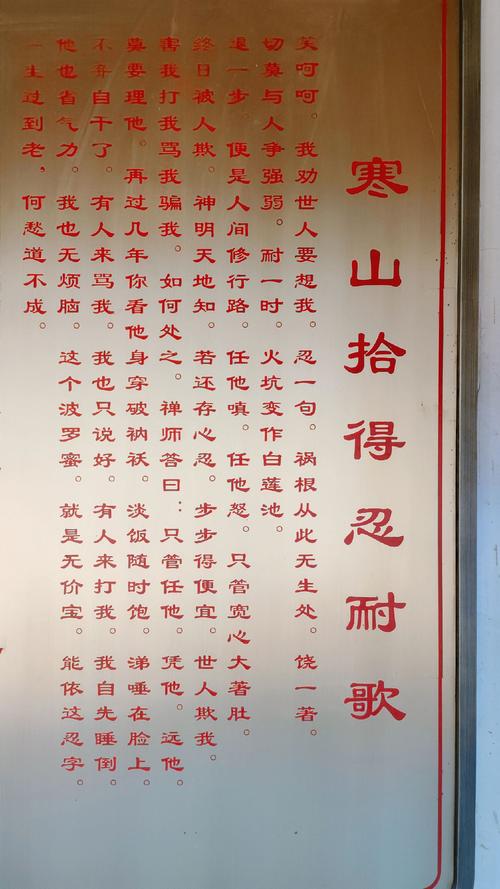 寒山拾得忍耐歌
笑呵呵。我劝世人要想我。忍一句。祸根从此无生处。饶一著。
切莫与人争强弱。耐一时。火坑变作白莲池。
退一步。便是人间修行路。任他嗔。任他怒。只管宽心大著肚。
终日被人欺。神明天地知。若还存心忍。步步得便宜。世人欺我。
害我打我骂我骗我。如何处之。禅师答曰：只管任他。凭他。远他。
莫要理他。再过几年你看他身穿破衲袄。淡饭随时饱。涕唾在脸上。
不弃自干了。有人来骂我。我也只说好。有人来打我。我自先睡倒。
他也省气力。我也无烦脑。这个波罗蜜。就是无价宝。能依这忍字。
一生过到老，何愁道不成。